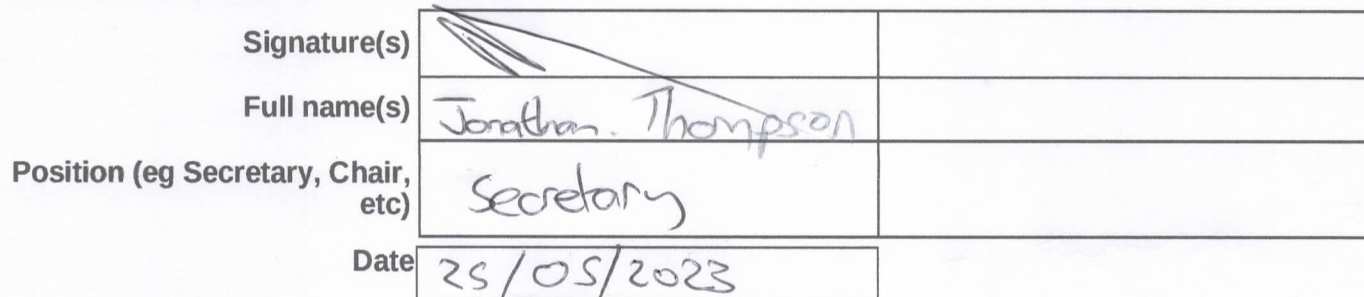 Signature(s)
Full name(s) Jonathan. Thompson
Position (eg Secretary, Chair,
etc) Secretary
Date 25/05/2023